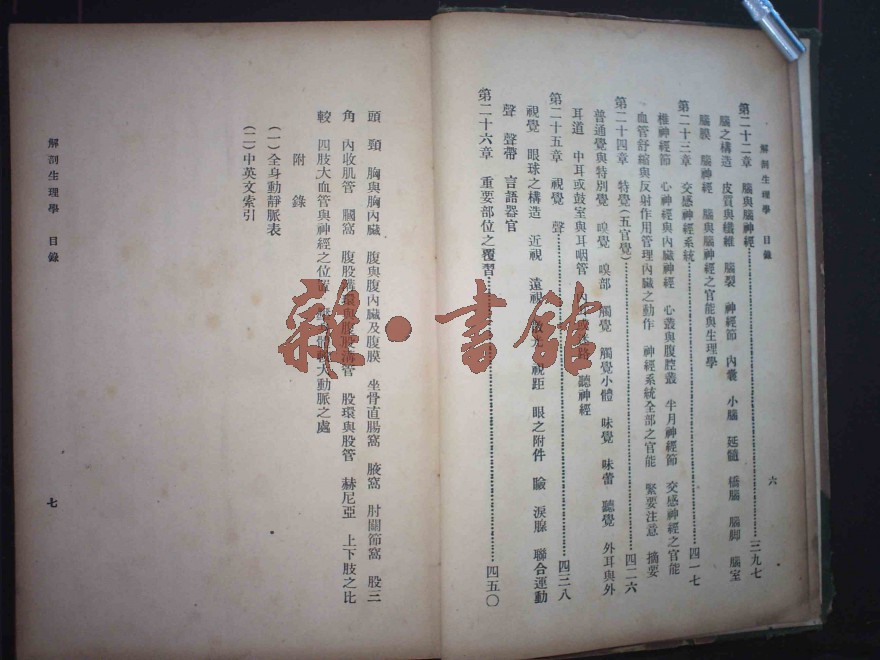 解剖生理學　目錄
六
第二十二章　腦與腦神經……三九七
腦之構造　皮質與纖維　腦裂　神經節　內囊　小腦　延髓　橋腦　腦脚　腦室
腦膜　腦神經　腦與腦神經之官能與生理學
第二十三章　交感神經系統……四一七
椎神經節　心神經與內臟神經　心叢與腹腔叢　半月神經節　交感神經之官能
血管舒縮與反射作用管理內臟之動作　神經系統全部之官能　緊要注意　摘要
第二十四章　特覺(五官覺)……四二六
普通覺與特別覺　嗅覺　嗅部　觸覺　觸覺小體　味覺　味蕾　聽覺　外耳與外
耳道　中耳或鼓室與耳咽管　內耳或　聽神經
第二十五章　視覺　聲……四三八
視覺　眼球之構造　近視　遠視　散光　視距　眼之附件　瞼　淚腺　聯合運動
聲　聲帶　言語器官
第二十六章　重要部位之覆習……四五〇
頭　頸　胸與胸內臟　腹與腹內臟及腹膜　坐骨直腸窩　腋窩　肘關節窩　股三
角　內收肌管　膕窩　腹股溝環與腹股溝管　股環與股管　赫尼亞　上下肢之比
較　四肢大血管與神經之位置　大動脈之處
附錄
(一)全身動靜脈表
(二)中英文索引
解剖生理學　目錄
七
雜·書館